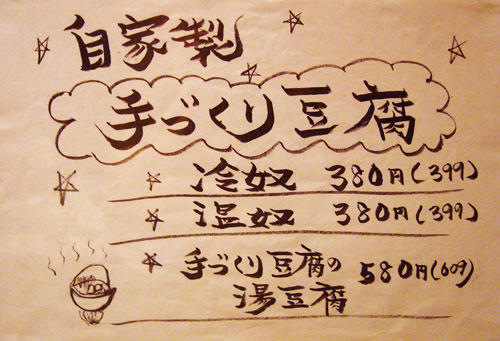 自家製
手づくり豆腐
冷奴 380円(399)
温奴 380円(399)
手づくり豆腐の 580円(609)
湯豆腐